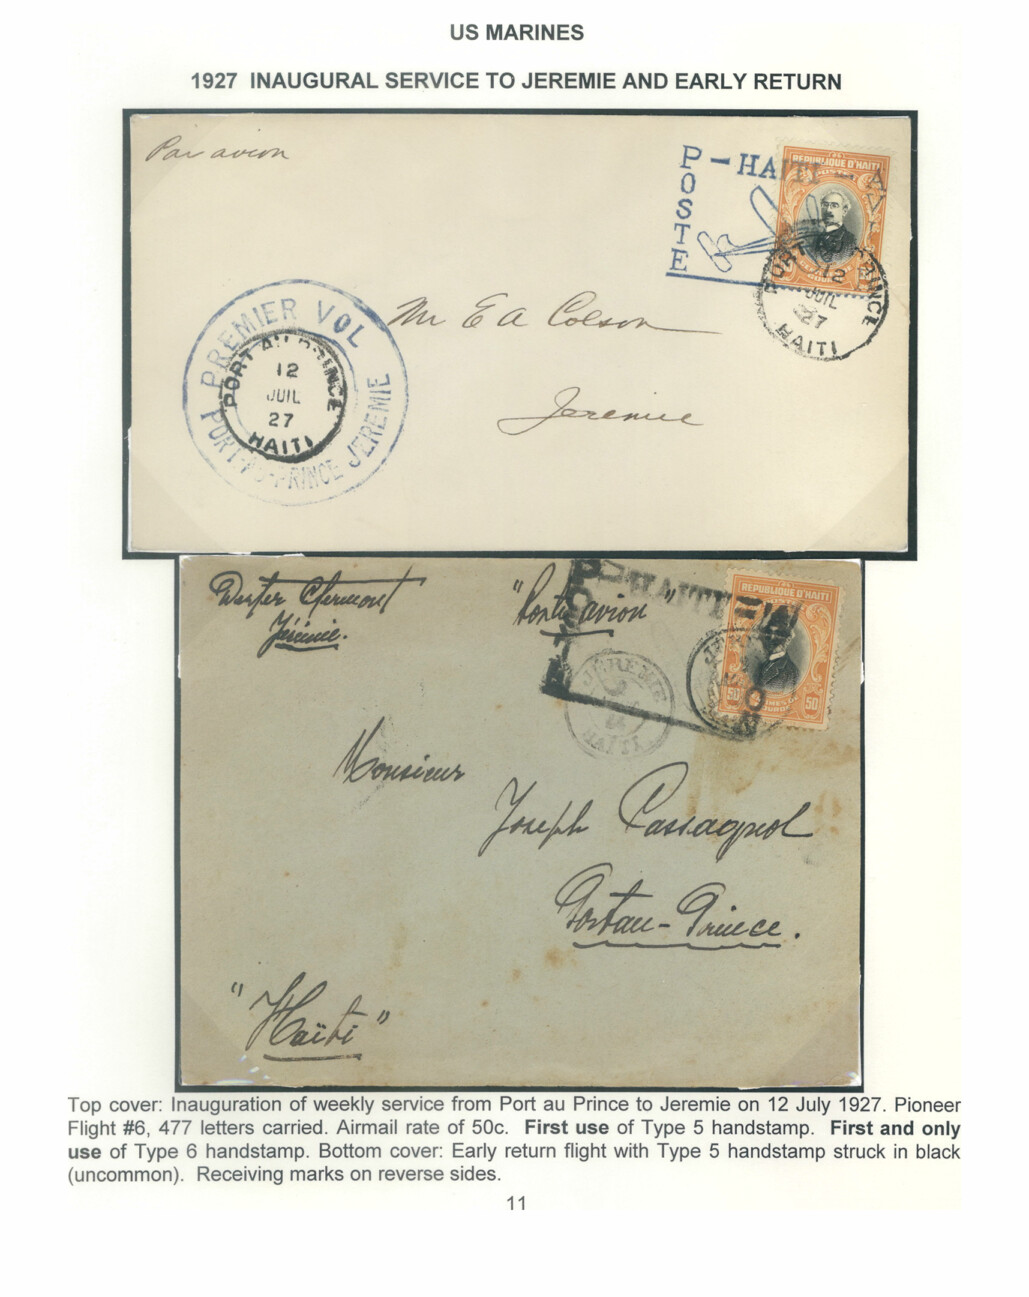 US MARINES
1927 INAUGURAL SERVICE TO JEREMIE AND EARLY RETURN
Par avion
P - HAITI -
POSTE
REPUBLIQUE D'HAITI
PORT AU PRINCE
12
JUIL
27
HAITI
Mr E A Colson
Jeremie
PREMIER VOL
PORT-AU-PRINCE JEREMIE
PORT AU PRINCE
12
JUIL
27
HAITI
Clermont
Jérémie.
" avion "
HAITI
REPUBLIQUE D'HAITI
50 50
JEREMIE
HAITI
Monsieur
Joseph Cassagnol
Port au-Prince.
"Haïti"
Top cover: Inauguration of weekly service from Port au Prince to Jeremie on 12 July 1927. Pioneer
Flight #6, 477 letters carried. Airmail rate of 50c. First use of Type 5 handstamp. First and only
use of Type 6 handstamp. Bottom cover: Early return flight with Type 5 handstamp struck in black
(uncommon). Receiving marks on reverse sides.
11